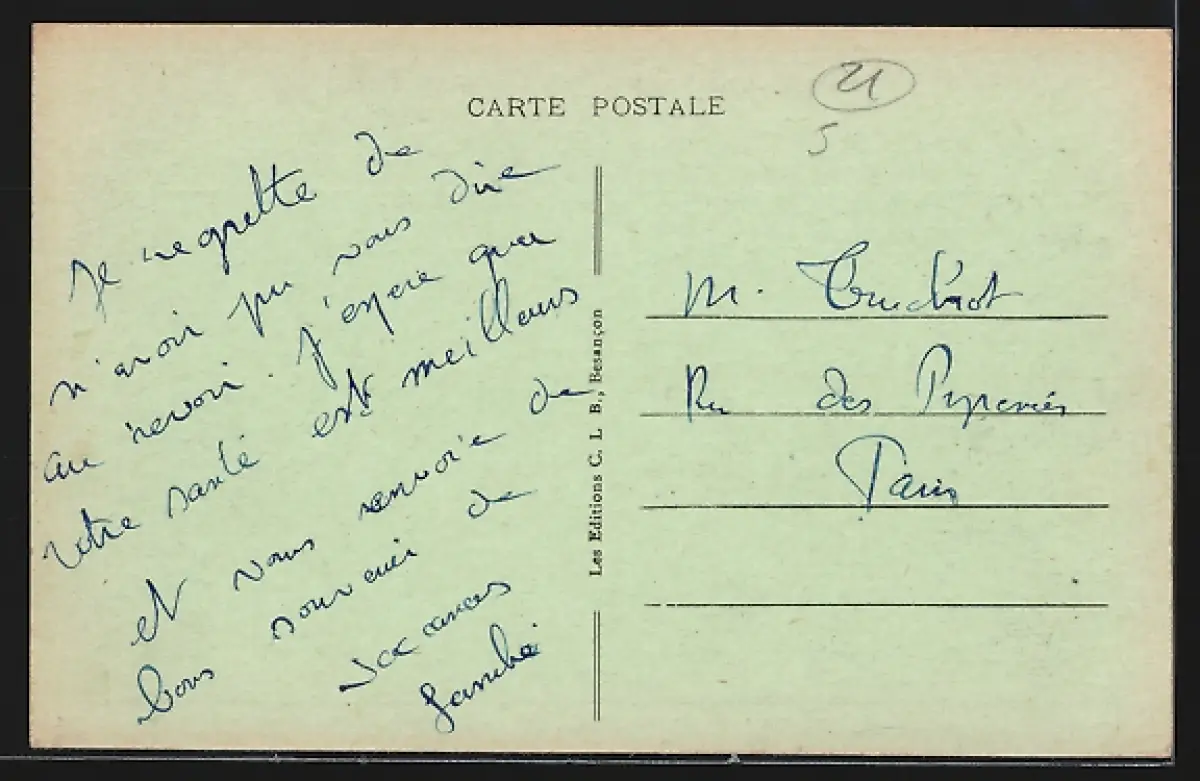 CARTE POSTALE
21
5
Je regrette de
n'avoir pu vous dire
au revoir. J'espère que
votre santé est meilleurs
et vous renvoie de
bons souvenir de
vacances
M.
Rue des Pyrenées
Paris
Les Editions C. L. B., Besançon